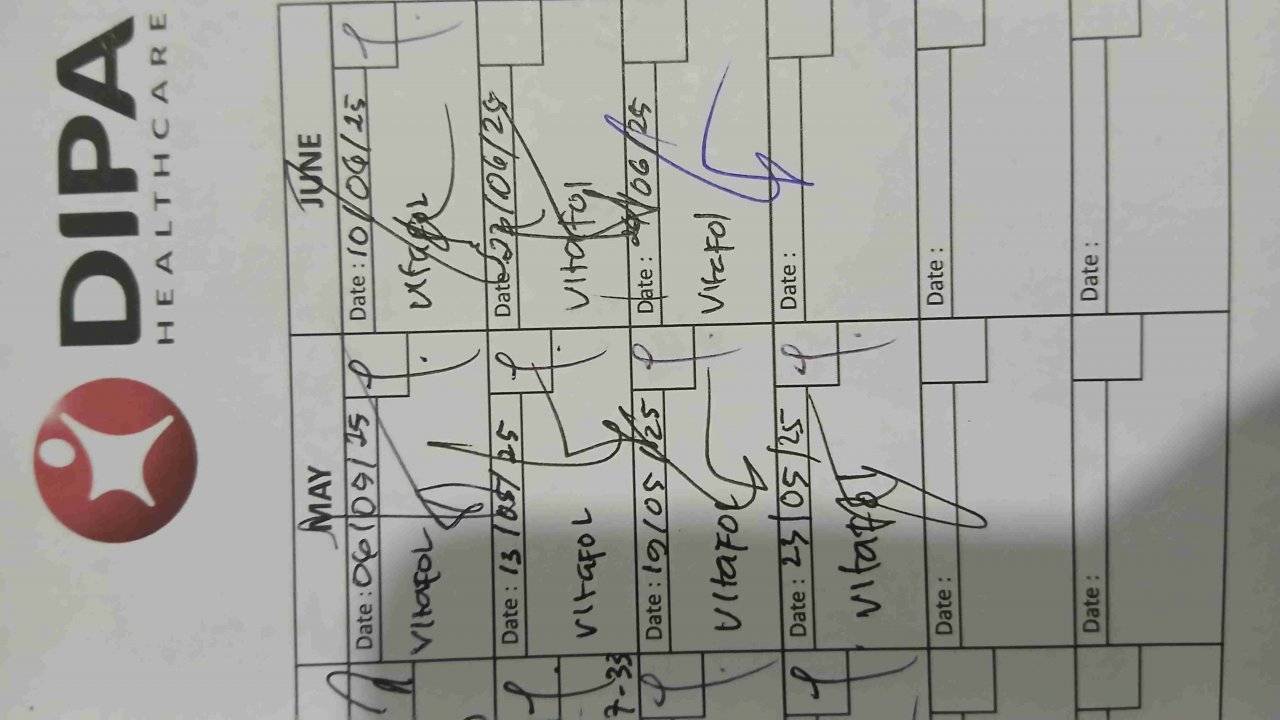 DIPA
HEALTHCARE
MAY
JUNE
Date : 06/05/25
VItaFOL
Date : 10/06/25
VItaFOL
Date : 13/05/25
VItaFOL
Date : 23/06/25
VItaFOl
Date : 19/05/25
VItaFOL
Date : /06/25
VItaFOl
Date : 23/05/25
VItaFOl
Date :
Date :
Date :
Date :
Date :
7-33